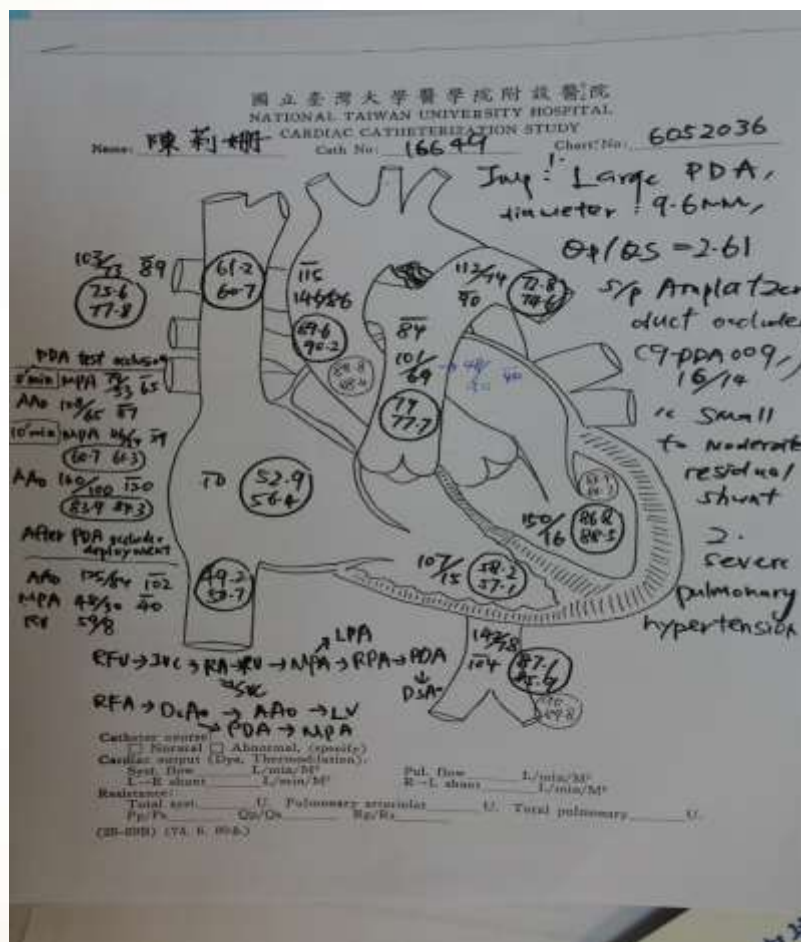 國立臺灣大學醫學院附設醫院
NATIONAL TAIWAN UNIVERSITY HOSPITAL
CARDIAC CATHETERIZATION STUDY
Name: 陳莉姍 Cath No: 16649 Chart No: 6052036
Imp: 1. Large PDA,
diameter: 9.6mm,
Qp/Qs = 2.61
s/p Amplatzer
duct occluder
(9-PDA009,
16/14
Small
to moderate
residual
shunt
2.
severe
pulmonary
hypertension
103/73 89
75.6
77.8
61.2
60.7
115
146/86
69.6
90.2
84
101/69
77
77.7
112/74
90
72.8
74.6
48/30 40
PDA test occlusion
MPA 65
AAo 108/65 87
10 min MPA
60.7 61.3
AAo 160/100 130
83.9 84.3
After PDA occluder
deployment
AAo 125/84 102
MPA 48/30 40
RV 59/8
10
52.9
56.4
150/16
86.8
88.5
107/15
58.2
57.1
104
87.6
85.9
RFV→IVC→RA→RV→MPA→RPA→PDA
LPA
SVC
DsAo
RFA→DsAo→AAo→LV
PDA→MPA
Catheter course:
□ Normal □ Abnormal, (specify)
Cardiac output (Dye, Thermodilution):
Syst. flow L/min/M² Pul. flow L/min/M²
L→R shunt L/min/M² R→L shunt L/min/M²
Resistance:
Total syst. U. Pulmonary arteriolar U. Total pulmonary U.
Pp/Ps Qp/Qs Rp/Rs